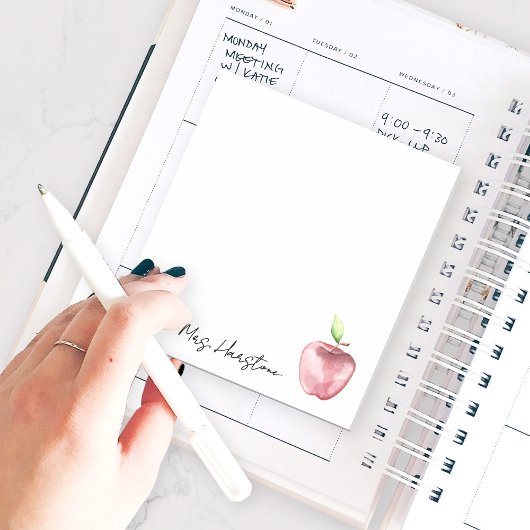 MONDAY / 01
TUESDAY / 02
WEDNESDAY / 03
MONDAY
MEETING
W/ KATIE
9:00 - 9:30
PICK UP
Mrs. Hairstone